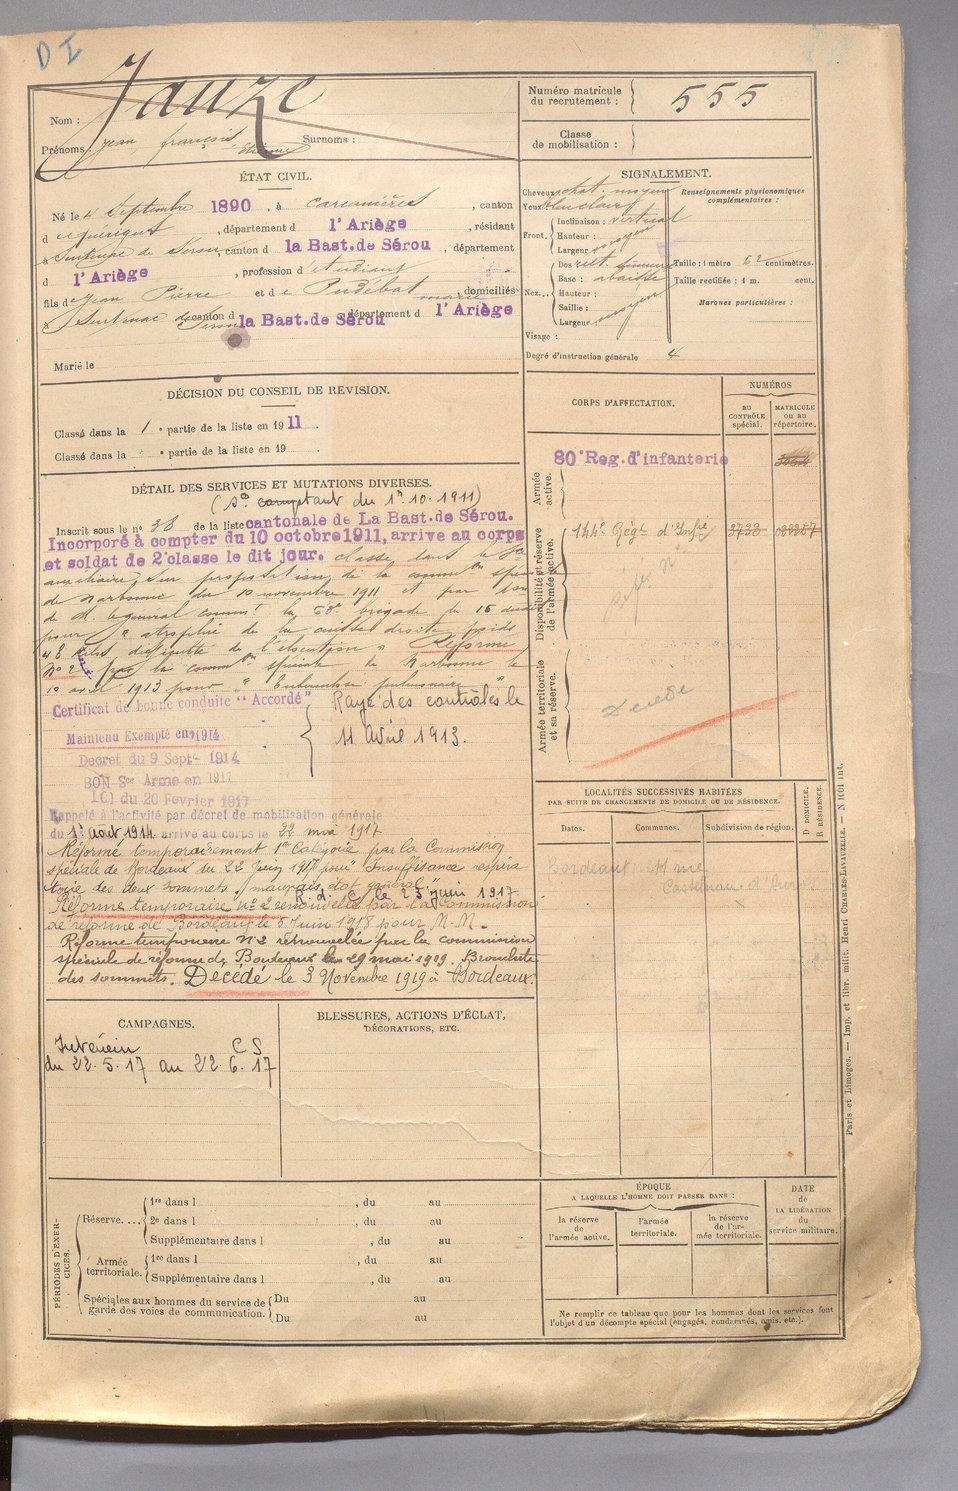 DI
Nom : Jauze
Prénoms : Jean françois Etienne Surnoms :
Numéro matricule du recrutement : 555
Classe de mobilisation :
ÉTAT CIVIL.
Né le 4 Septembre 1890, à Carcanières, canton
d Quérigut, département d l'Ariège, résidant
à Sentenac de Serou, canton d la Bast. de Sérou, département
d l'Ariège, profession d étudiant
fils de Jean Pierre et de Pudébat marie, domiciliés
à Sentenac de Serou canton d la Bast. de Sérou département d l'Ariège
Marié le
SIGNALEMENT.
Cheveux chat. moyen
Yeux bleu clair
Front. Inclinaison : vertical
Hauteur :
Largeur : moyen
Nez... Dos rect.
Base : abaissée
Hauteur :
Saillie :
Largeur moyen
Visage :
Renseignements physionomiques complémentaires :
Taille : 1 mètre 62 centimètres.
Taille rectifiée : 1 m. cent.
Marques particulières :
Degré d'instruction générale 4
DÉCISION DU CONSEIL DE REVISION.
Classé dans la 1e partie de la liste en 1911
Classé dans la e partie de la liste en 19
DÉTAIL DES SERVICES ET MUTATIONS DIVERSES.
(Sce comptant du 1er.10.1911)
Inscrit sous le no 38 de la liste cantonale de La Bast. de Sérou.
Incorporé à compter du 10 octobre 1911, arrive au corps
et soldat de 2e classe le dit jour. classé dans le Sce
auxiliaire, sur proposition de la common spéciale
de Narbonne du 10 novembre 1911 et par
de M. le général commt la 63e brigade le 16 dudit
pour "atrophie de la cuisse droite, poids
48 kilos
Réformé
No 2 par la common spéciale de Narbonne le
10 avril 1913 pour "Tuberculose pulmonaire"
Certificat de bonne conduite "Accordé"
Rayé des contrôles le
11 Avril 1913.
Maintenu Exempté en 1914
Décret du 9 Sept- 1914
BON Sce Armé en 1917
Loi du 20 Février 1917
Rappelé à l'activité par décret de mobilisation générale
du 1er Août 1914. arrivé au corps le 22 mai 1917
Réformé temporairement 1e Catégorie par la Commission
spéciale de Bordeaux du 22 Juin 1917 pour "Insuffisance respira
toire des deux sommets, mauvais état général."
R. d. C. le 23 juin 1917.
Réforme temporaire no 2 renouvelée par la Commission
de réforme de Bordeaux le 5 Juin 1918 pour M-M-
Réforme temporaire no 2 renouvelée par la commission
spéciale de réforme de Bordeaux le 29 mai 1919. Bronchite
des sommets. Décédé le 3 Novembre 1919 à Bordeaux.
CORPS D'AFFECTATION.
NUMÉROS
AU CONTRÔLE spécial.
MATRICULE OU AU répertoire.
Armée active.
80e Reg. d'infanterie
Disponibilité et réserve de l'armée active.
144e Régt d'Infie 3733
Armée territoriale et sa réserve.
Décédé
LOCALITÉS SUCCESSIVES HABITÉES
PAR SUITE DE CHANGEMENTS DE DOMICILE OU DE RÉSIDENCE.
Dates.
Communes.
Subdivision de région.
D DOMICILE.
R RÉSIDENCE.
Bordeaux rue
Castelnau d'Auros
CAMPAGNES.
Intérieur CS
du 22.5.17 au 22.6.17
BLESSURES, ACTIONS D'ÉCLAT,
DÉCORATIONS, ETC.
PÉRIODES D'EXERCICES.
Réserve....
1re dans l , du au
2e dans l , du au
Supplémentaire dans l , du au
Armée territoriale.
1re dans l , du au
Supplémentaire dans l , du au
Spéciales aux hommes du service de garde des voies de communication.
Du au
Du au
ÉPOQUE
A LAQUELLE L'HOMME DOIT PASSER DANS :
la réserve de l'armée active.
l'armée territoriale.
la réserve de l'armée territoriale.
DATE
de
LA LIBÉRATION
du
service militaire.
Ne remplir ce tableau que pour les hommes dont les services font
l'objet d'un décompte spécial (engagés, condamnés, omis, etc.).
Paris et Limoges. — Imp. et libr. milit. Henri CHARLES-LAVAUZELLE. — N 1001 int.